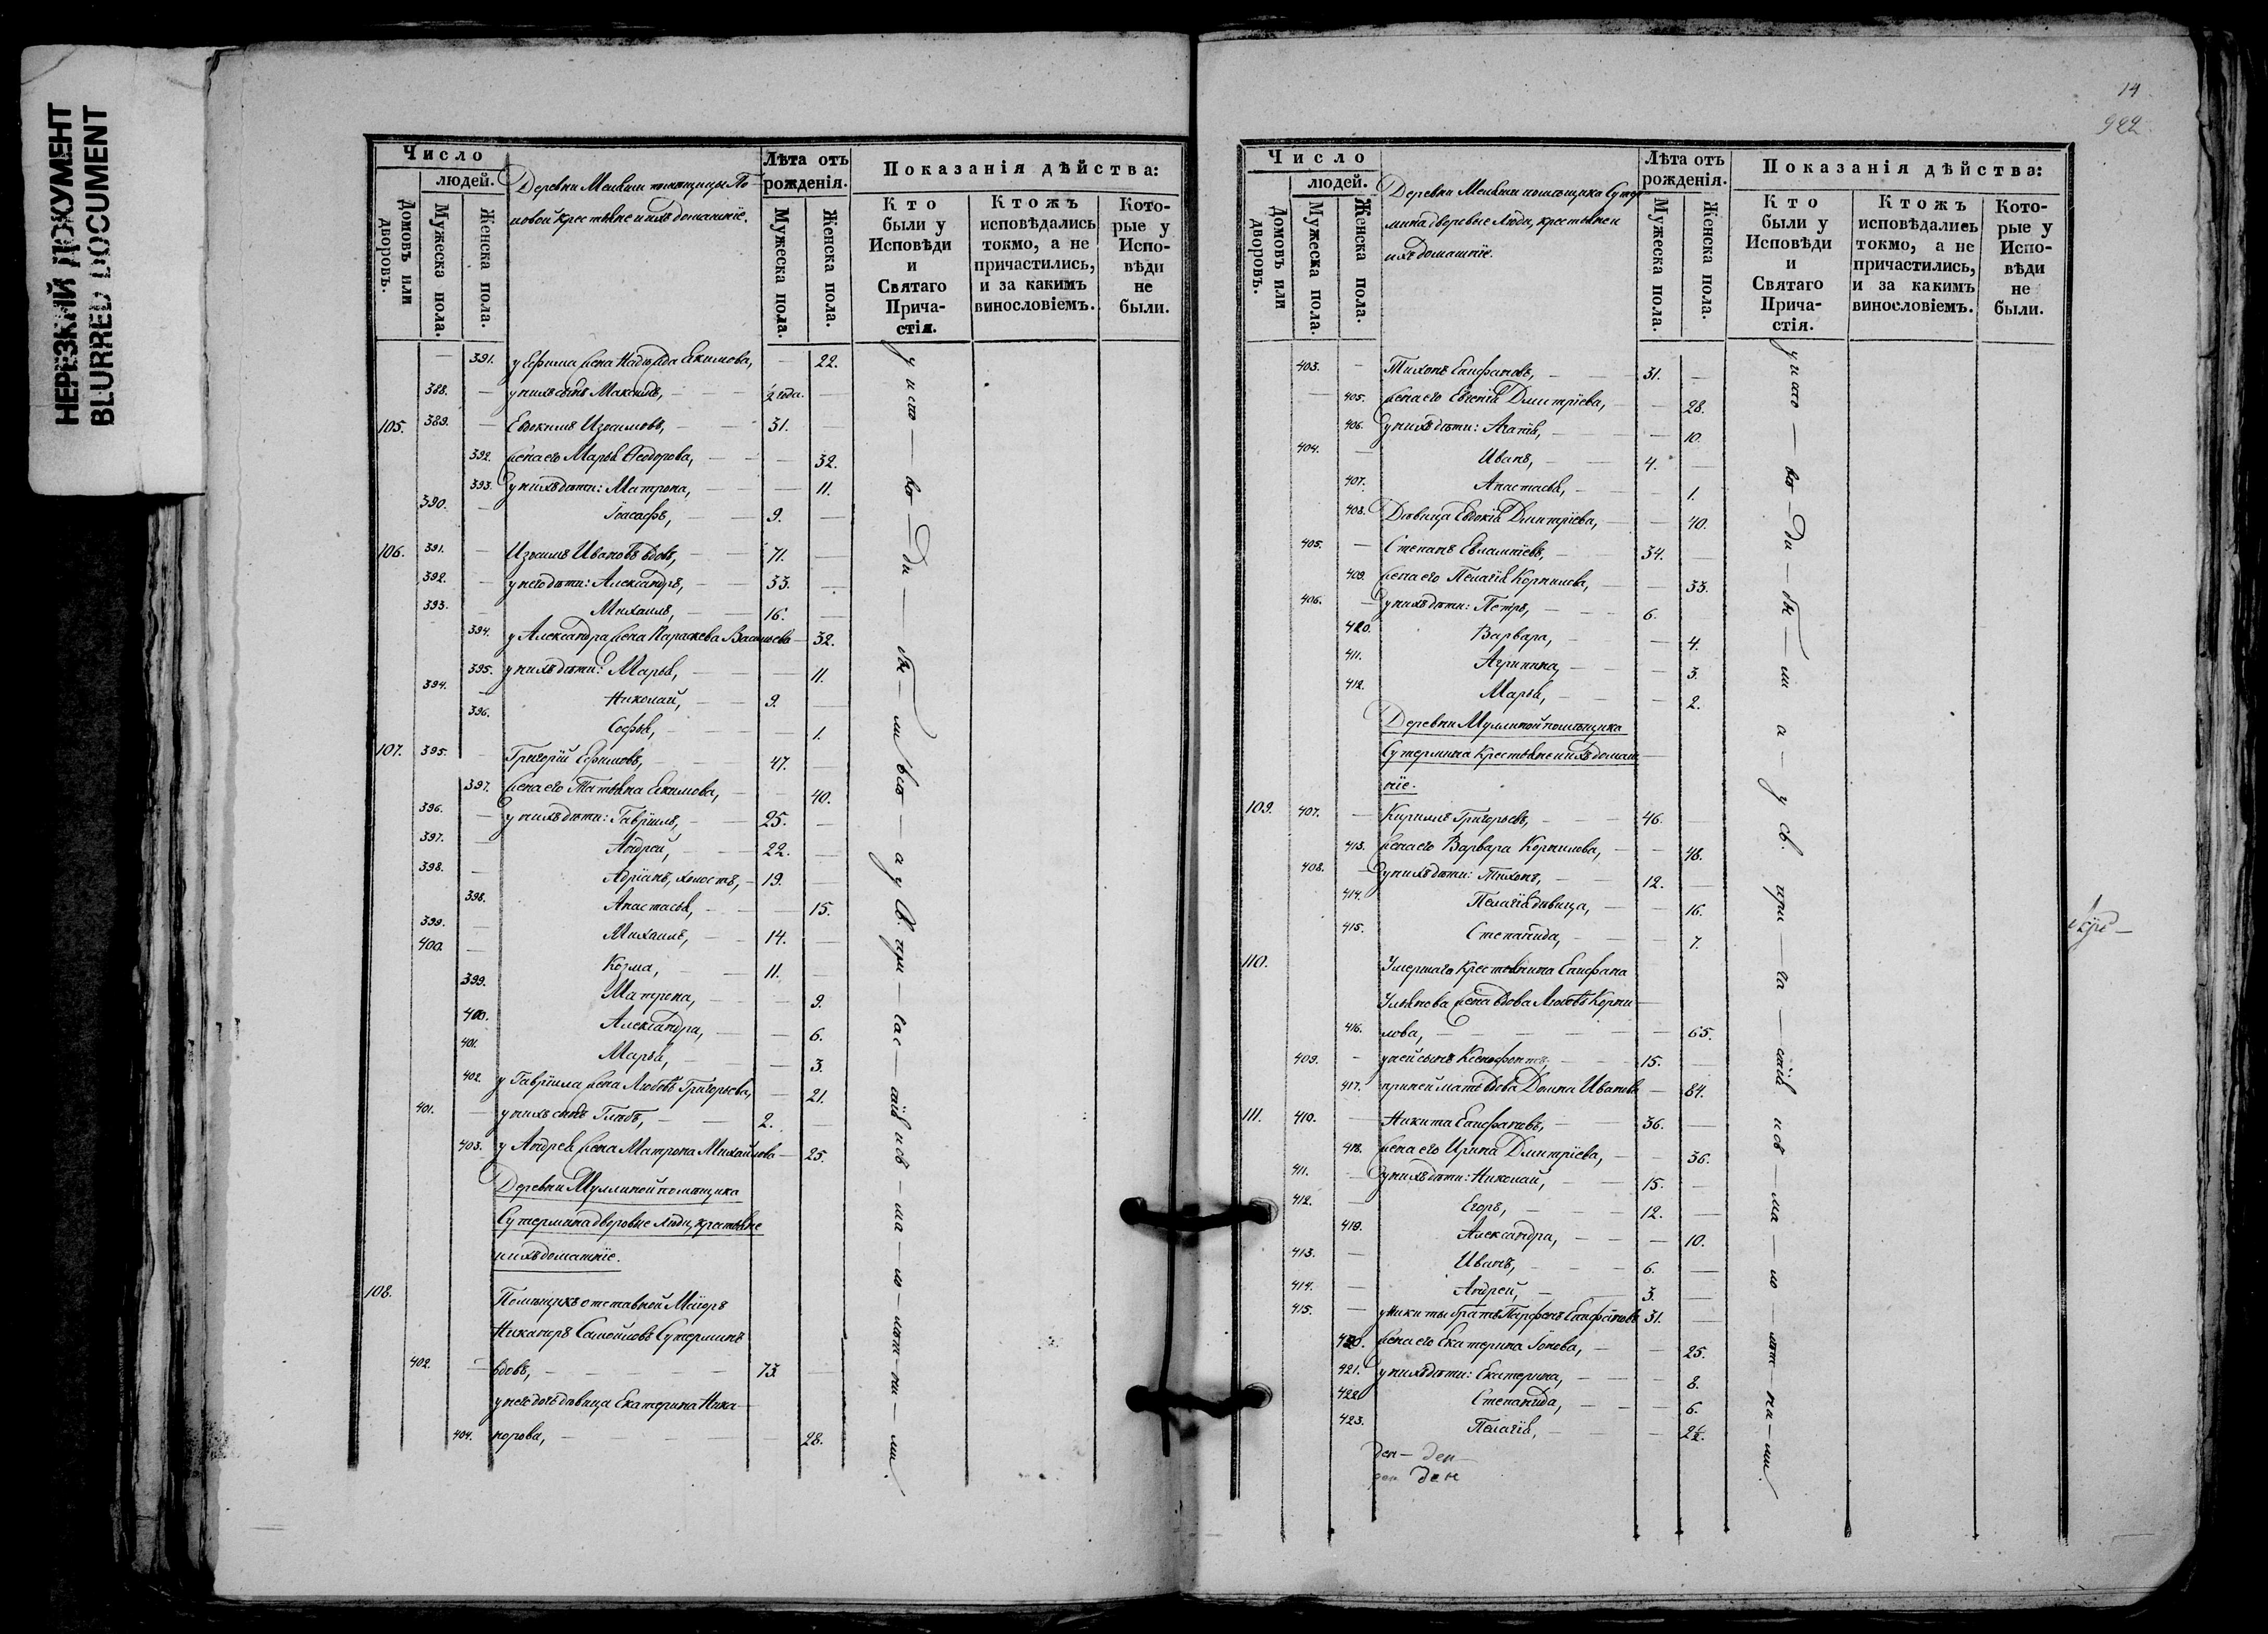 НЕРЕЗКИЙ ДОКУМЕНТ
BLURRED DOCUMENT
Число
людей.
Домовъ или дворовъ.
Мужеска пола.
Женска пола.
Деревни помещицы По-
повой крестьяне и ихъ домашнiе.
Лѣта отъ рожденія.
Мужеска пола.
Женска пола.
Показанія дѣйства:
Кто были у Исповѣди и Святаго Причастія.
Ктожъ исповѣдались токмо, а не причастились, и за какимъ винословіемъ.
Которые у Исповѣди не были.
— 391. у Ефима жена Надежда Екимова, — 22.
388. — у нихъ сынъ Максимъ, — ½ года. —
105. 389. — Евдокимъ Изосимовъ, — 31. —
392. жена его Марья Ѳеодорова, — 32.
393. у нихъ дѣти: Матрона, — 11.
390. — Іоасафъ, — 9. —
106. 391. — Изосимъ Ивановъ вдовъ, — 71. —
392. — у него дѣти: Александръ, — 33. —
393. — Михаилъ, — 16. —
394. у Александра жена Параскева Васильева — 32.
395. у нихъ дѣти: Марья, — 11.
394. — Николай, — 9.
396. Софья, — 1.
107. 395. — Григорій Ефимовъ, — 47. —
397. жена его Татьяна Екимова, — 40.
396. — у нихъ дѣти: Гавріилъ, — 25. —
397. — Андрей, — 22. —
398. — Адріанъ, холостъ, — 19. —
398. Анастасья, — 15.
399. — Михаилъ, — 14. —
400. — Козма, — 11. —
399. Матрона, — 9.
400. Александра, — 6.
401. Марья, — 3.
402. у Гавріила жена Любовь Григорьева, — 21.
401. — у нихъ сынъ Глѣбъ, — 2.
403. у Андрея жена Матрона Михайлова — 25.
Деревни Муллиной помѣщика
Сутермина дворовые люди, крестьяне
и ихъ домашніе.
108. Помѣщикъ отставной Маіоръ
Никаноръ Самойловъ Сутерминъ
402. — вдовъ, — 73.
у него дочь дѣвица Екатерина Ника-
404. норова, — 28.
у испо — вѣ — ди бы — ли вси — а у Св. при — час — тія
14
922
Число
людей.
Домовъ или дворовъ.
Мужеска пола.
Женска пола.
Деревни помѣщика Сутер-
мина дворовые люди, крестьяне и
ихъ домашніе.
Лѣта отъ рожденія.
Мужеска пола.
Женска пола.
Показанія дѣйства:
Кто были у Исповѣди и Святаго Причастія.
Ктожъ исповѣдались токмо, а не причастились, и за какимъ винословіемъ.
Которые у Исповѣди не были.
403. — Тихонъ Епифановъ, — 31. —
— 405. жена его Евгенія Дмитріева, — 28.
406. у нихъ дѣти: Агапія, — 10.
404. — Иванъ, — 4. —
407. Анастасья, — 1.
408. Дѣвица Евдокія Дмитріева, — 40.
405. — Степанъ Евлампіевъ, — 34. —
409. жена его Пелагія Корнилова, — 33.
406. — у нихъ дѣти: Петръ, — 6.
410. Варвара, — 4.
411. Агрипина, — 3.
412. Марья, — 2.
Деревни Муллиной помѣщика
Сутермина крестьяне и ихъ домаш-
ніе.
109. 407. — Кириллъ Григорьевъ, — 46. —
413. жена его Варвара Корнилова, — 48.
408. — у нихъ дѣти: Тихонъ, — 12. —
414. Пелагія дѣвица, — 16.
415. Степанида, — 7.
110. Умершаго крестьянина Епифана
жена вдова Любовь Корни-
416. лова, — 65.
409. — у ней сынъ Ксенофонтъ, — 15. —
417. при ней мать вдова Домна Иванова — 84.
111. 410. — Никита Епифановъ, — 36. —
418. жена его Ирина Дмитріева, — 36.
411. — у нихъ дѣти: Николай, — 15. —
412. — Егоръ, — 12. —
419. Александра, — 10.
413. — Иванъ, — 6. —
414. — Андрей, — 3. —
415. — у Никиты братъ Парфенъ Епифановъ 31. —
420. жена его Екатерина Іонова, — 25.
421. у нихъ дѣти: Екатерина, — 8.
422. Степанида, — 6.
423. Пелагія, — 2½.
ден — ден
ден
у испо — вѣ — ди — бы — ли а — у св. при — ча — стія